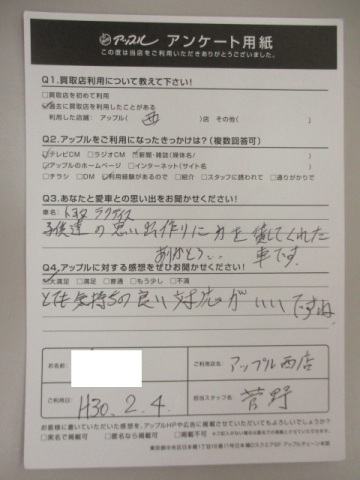 アップル アンケート用紙
この度は当店をご利用いただきありがとうございました。
Q1.買取店利用について教えて下さい!
□買取店を初めて利用
☑過去に買取店を利用したことがある
利用した店舗: アップル( 西 )店 その他( )
Q2.アップルをご利用になったきっかけは?(複数回答可)
☑テレビCM □ラジオCM □新聞・雑誌(媒体名/ )
☑アップルのホームページ □インターネット(サイト名 )
□チラシ □DM ☑利用経験があるので □紹介 □スタッフに誘われて □通りがかりで
Q3.あなたと愛車との思い出をお聞かせください!
車名: トヨタ ラクティス
子供達の思い出作りに力を貸してくれた
ありがとう... 車です
Q4.アップルに対する感想をぜひお聞かせください!
☑大満足 □満足 □普通 □もう少し □不満
とても気持ちの良い対応がいいですね
お名前:
ご利用店名: アップル西店
ご利用日: H30.2.4
担当スタッフ名: 菅野
お客様に書いていただいた感想を、アップルHPや広告に掲載させていただいてもよろしいでしょうか?
□実名で掲載可 □匿名なら掲載可 □掲載不可